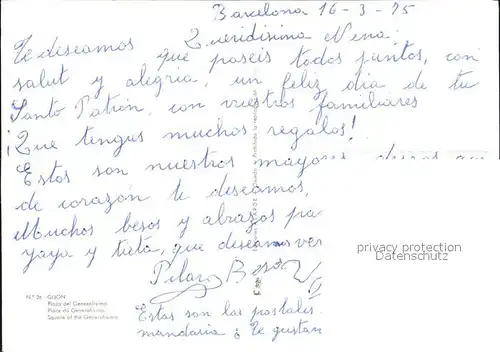 Barcelona 16-3-75
Queridisima Nena:
Te deseamos que paseis todos juntos, con
salut y alegria, un feliz dia de tu
Santo Patrón, con vuestros familiares
¡Que tengas muchos regalos!
Estos son nuestros mayores
de corazón te deseamos,
Muchos besos y abrazos pa-
yaya y tieta, que deseamos ver
Pilar
privacy protection
N.º 26 GIJON
Plaza del Generalísimo
Place du Generalísimo
Square of the Generalísimo
Estas son las postales
mandaria ¿ Te gustan